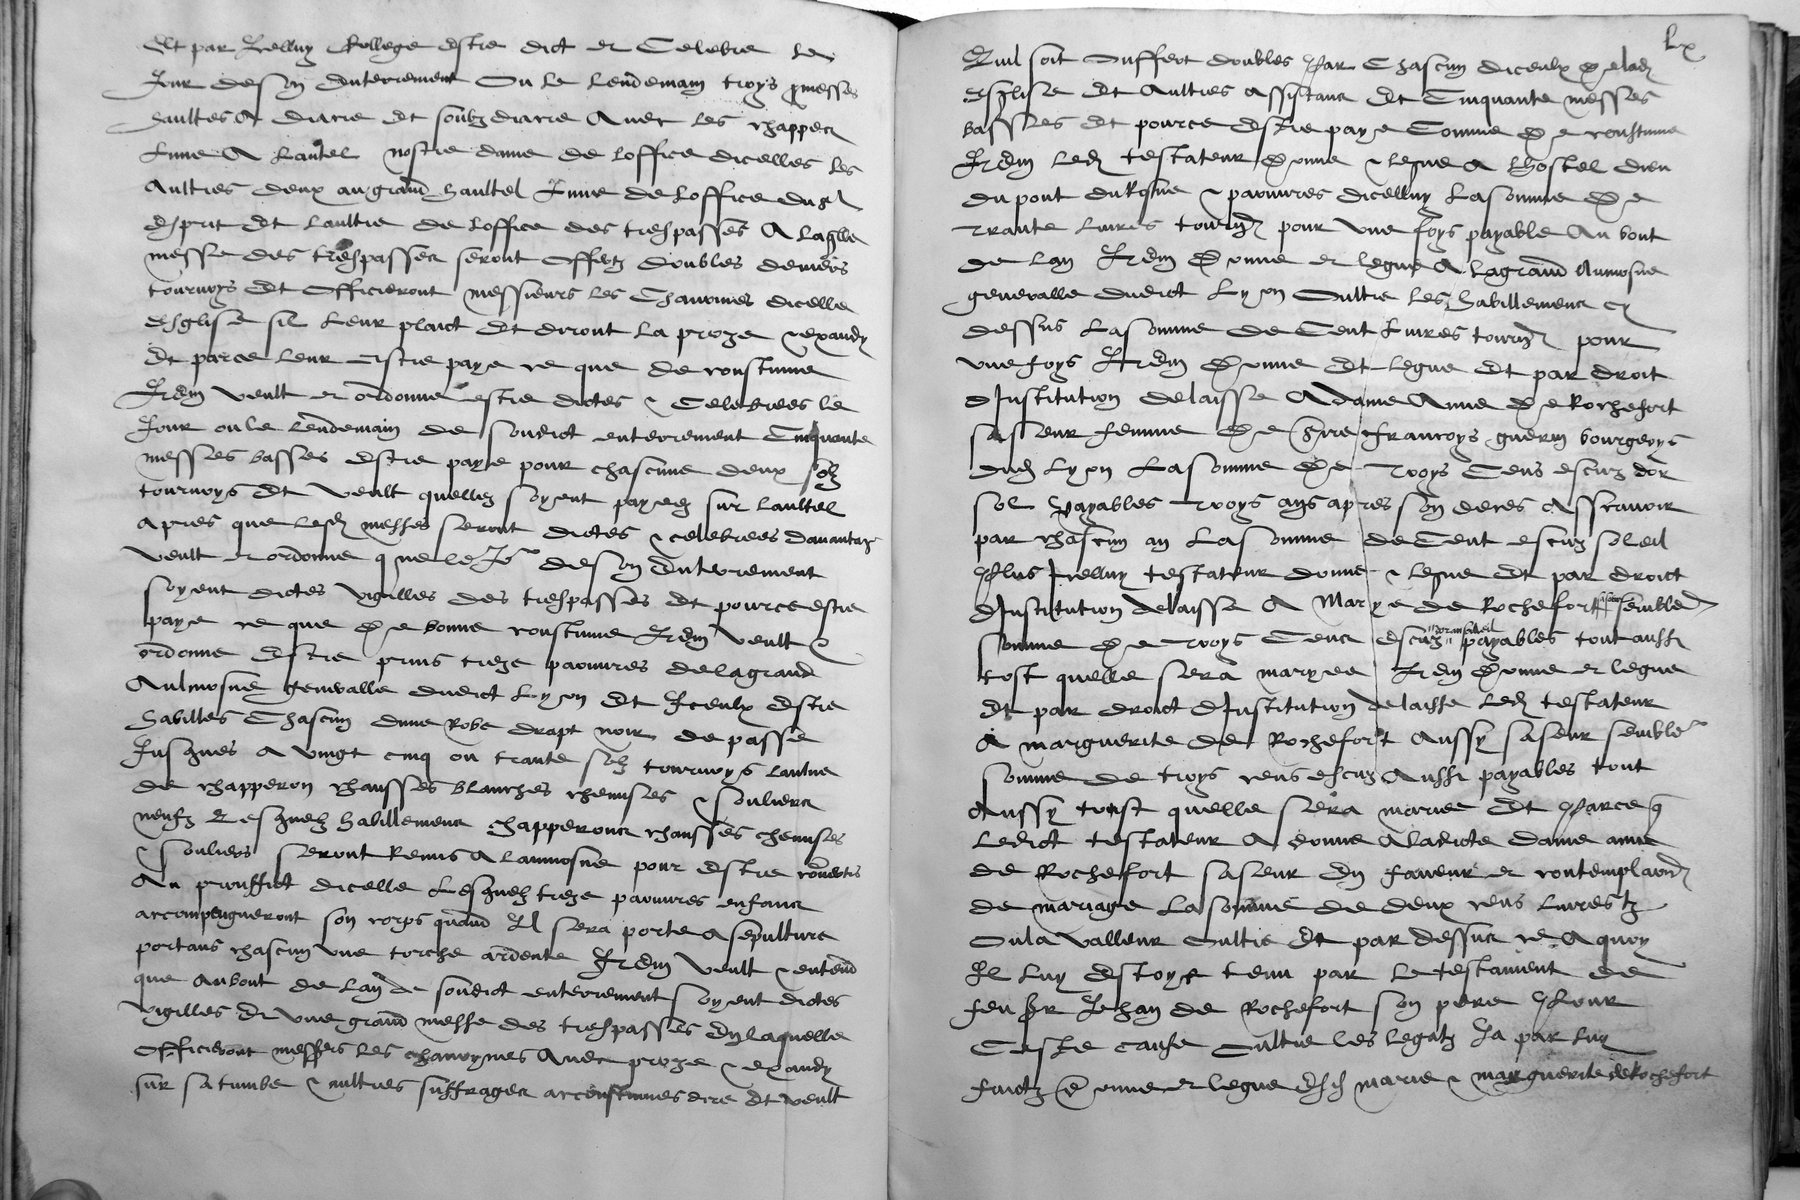 Et par Icelluy College estre dict et Celebre le
Jour de son Enterrement Ou le lendemain troys messes
haultes A diacre Et soubz diacre Avec les chappes
Lune A Lautel nostre dame de loffice dicelles les
Aultres deux au grand haultel Lune de Loffice du st
Esprit Et Laultre de Loffice des trespasses A laqlle
messe des trespasses seront Offertz doubles deniers
tournoys Et Officieront messieurs les Chanoines dicelle
Esglise sil Leur plaict Et diront la proze & exaudy
Et parce leur estre paye ce que de coustume
Itdm veult et ordonne estre dictes & Celebrees le
Jour ou le Lendemain de soudict enterrement Cinquante
messes basses Estre paye pour chascune deux solz
tournoys Et veult quellez soyent payez sur Laultel
Apres que lesd messes seront dictes & celebrees davantaze
veult et ordonne que le Jr de son Enterrement
soyent dictes vigilles des trespasses Et pource estre
paye ce que de bonne coustume Itdm veult &
ordonne Estre prins treze pauvres de la grand
Aulmosne generalle dudict Lyon Et Iceulx Estre
habilles Chascun dune Robe drapt noir de passe
Jusques A vingt cinq ou trante solz tournoys Laulne
de chapperon chausses blanches chemises & souliers
neufz Lesquelz habillemens chapperons chausses chemises
& souliers seront Remis A laumosne pour Estre convertis
Au prouffict dicelle Lesquelz treze pauvres enfans
accompeigneront son corps quand Il sera porte A sepulture
portans chascun une torche ardente Itdm veult & entend
que Aubont de Lan de soudict enterrement soyent dictes
vigilles Et une grand messe des trespasses En laquelle
Officieront messrs les chanoynes Avec proze & exaudy
sur sa tumbe & aultres suffrages accoustumes dire Et veult
Lx
Quil soit Offert doubles Par Chascun diceulx de lad
Esglise Et Aultres Assistans Et Cinquante messes
basses Et pource Estre paye Comme de coustume
Itdm Led testateur donne & legue A Lhostel dieu
du pont du Rosne & pauvres dicelluy La somme de
Trante Livres tournz pour une foys payable Au bout
de lan Itdm donne et legue A lagrand Aumosne
generalle dudict Lyon Oultre les habillemens cy
dessus La somme de Cent Livres tournz pour
une foys Itdm donne Et legue Et par droit
dInstitution delaisse A dame Anne de Rochefort
sa seur femme de sire francoys guerin bourgeoys
dud Lyon La somme de Troys Cens escuz dor
sol payables Troys ans apres son deces Asscavoir
par chascun an La somme de Cent escuz soleil
Plus Icelluy testateur donne & legue Et par droict
dInstitution delaisse A Marye de Rochefort sa seur semble
somme de Troys Cens Escuz dor au soleil payables tout aussi
tost quelle sera maryee Itdm donne et legue
Et par droict dInstitution delaisse Led testateur
A marguerite de Rochefort Aussy sa seur semble
somme de troys cens escuz Aussi payables tout
Aussy tost quelle sera mariee Et Parce q
Ledict testateur A donne A ladicte dame anne
de Rochefort sa seur En faveur et contemplaon
de mariage La somme de deux cens livres tz
Ou la valleur Oultre Et par dessus ce A quoy
Il luy Estoyt tenu par Le testament de
feu sr Jehan de Rochefort son pere Pour
Ceste cause Oultre les legatz Ja par luy
faictz donne et legue Esd marie & marguerite de Rochefort